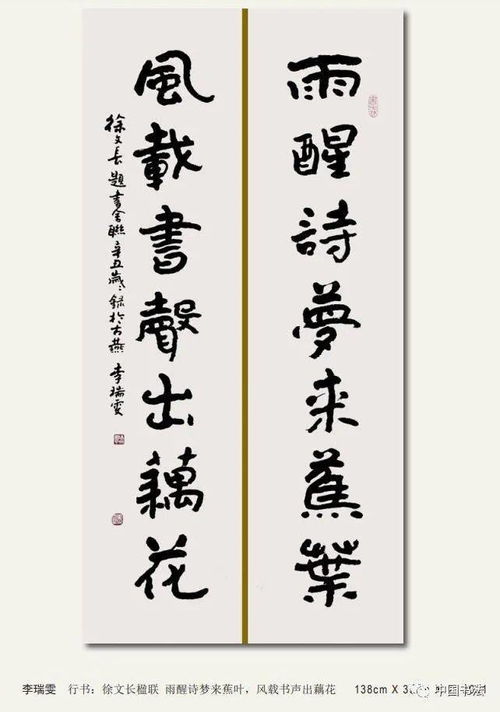 雨醒詩夢來蕉葉
風載書聲出藕花
徐文長題書舍聯辛丑歲錄於古燕 李瑞雯
李瑞雯 行书：徐文长楹联 雨醒诗梦来蕉叶，风载书声出藕花 138cm X
中国书法